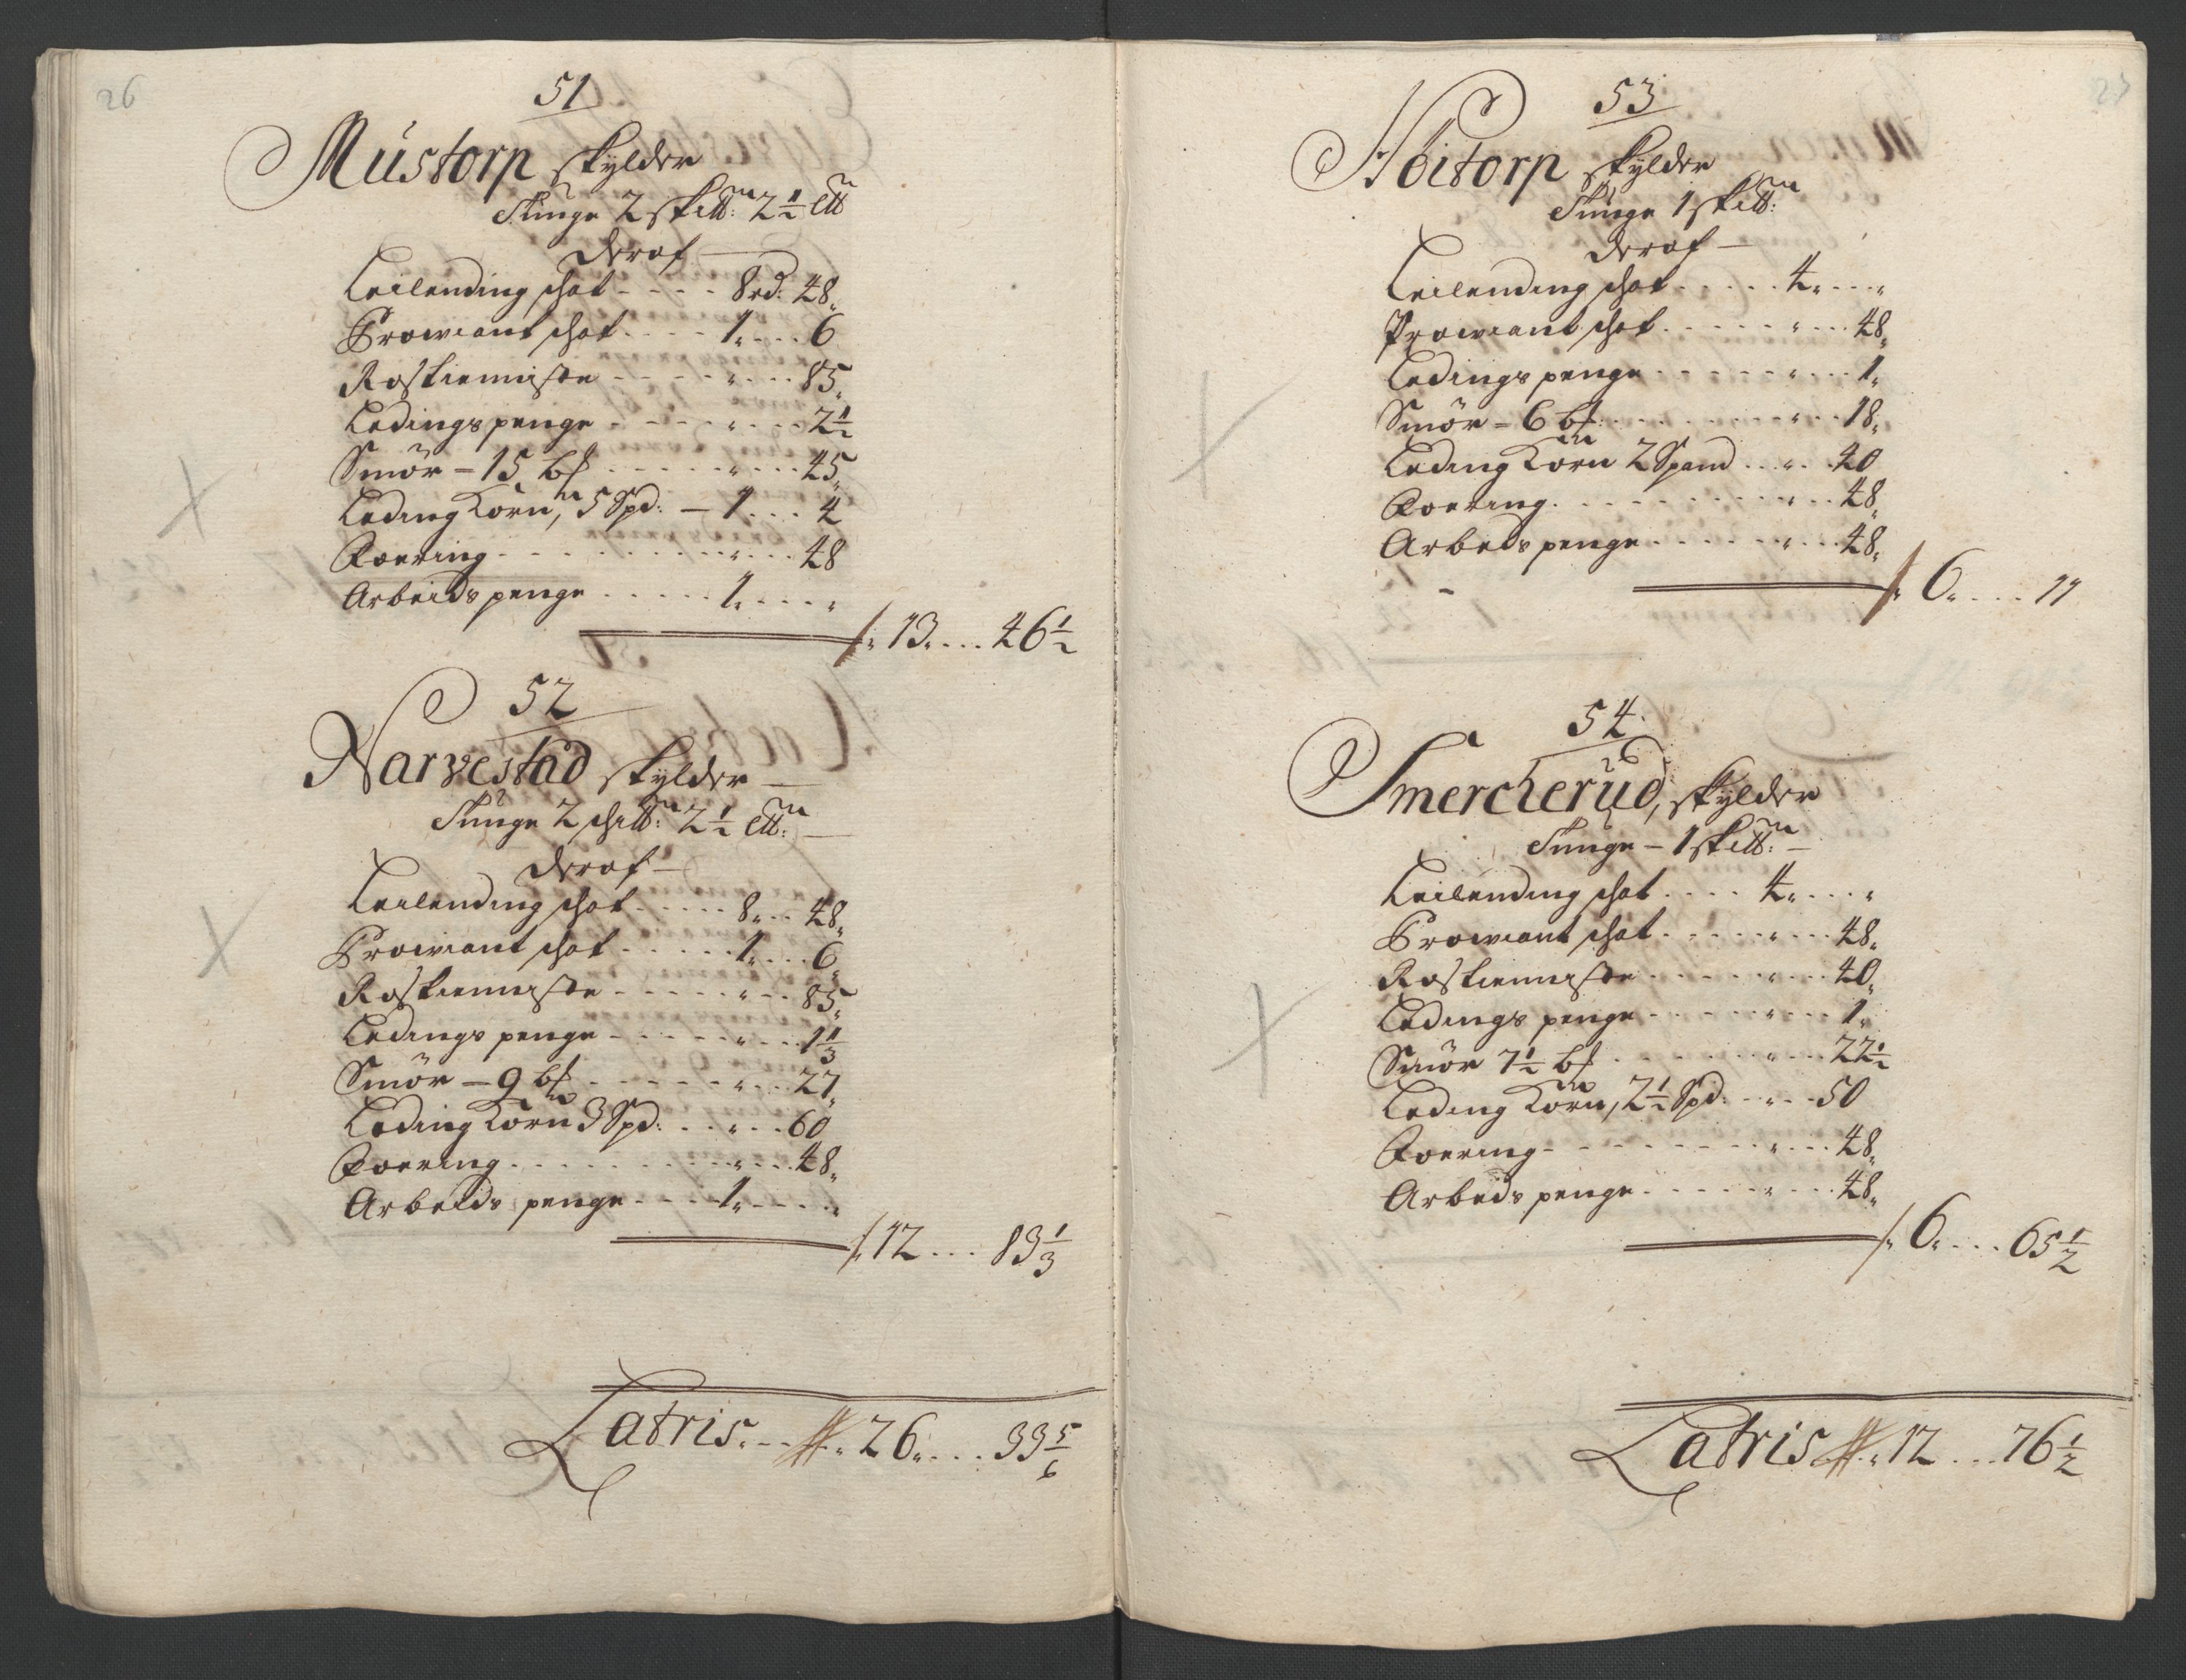 26
51
Mustorp skylder
Tunge 2 skill: 2½ l℔
deraf
Leilending schat - - - - 8rd: 48
Proviant schat - - - - 1 - - - 6
Rostienniste - - - - " - - - 85
Ledings penge - - - - " - - - 2½
Smör - 15 bℓ - - - - " - - - 45
Leding Korn, 5 Spd: - 1 - - - 4
Foering - - - - " - - - 48
Arbeids penge - - - - 1 - - - "
13 - - - 46½
52
Narvestad skylder
Tunge 2 schill: 2½ l℔:
deraf
Leilending schat - - - - 8 - - 48
Proviant schat - - - - 1 - - - 6
Rostienniste - - - - " - - 85
Ledings penge - - - - " - - - 1⅓
Smör - 9 bℓ - - - - " - - - 27
Leding Korn 3 Spd: - - " - - 60
Foering - - - - " - - - 48
Arbeids penge - - - - 1 - - - "
12 - - - 83⅓
Latris - - - 26 - - - 33⅚
53
Höitorp skylder
Tunge 1 skill:
deraf
Leilending schat - - - - 4 - - - "
Proviant schat - - - - " - - - 48
Ledings penge - - - - " - - - 1
Smör - 6 bℓ: - - - - " - - - 18
Leding Korn 2 Spand - - " - - 40
Foering - - - - " - - - 48
Arbeds penge - - - - " - - - 48
6 - - - 11
54
Smercherud, skylder
Tunge - 1 skill:
Leilending schat - - - - 4 - - - "
Proviant schat - - - - " - - - 48
Rostienniste - - - - " - - - 40
Ledings penge - - - - " - - - 1
Smör 7½ bℓ - - - - " - - - 22½
Leding Korn, 2½ Spd: - - " - - 50
Foering - - - - " - - - 48
Arbeds penge - - - - " - - - 48
6 - - - 65½
Latris 12 - - - 76½